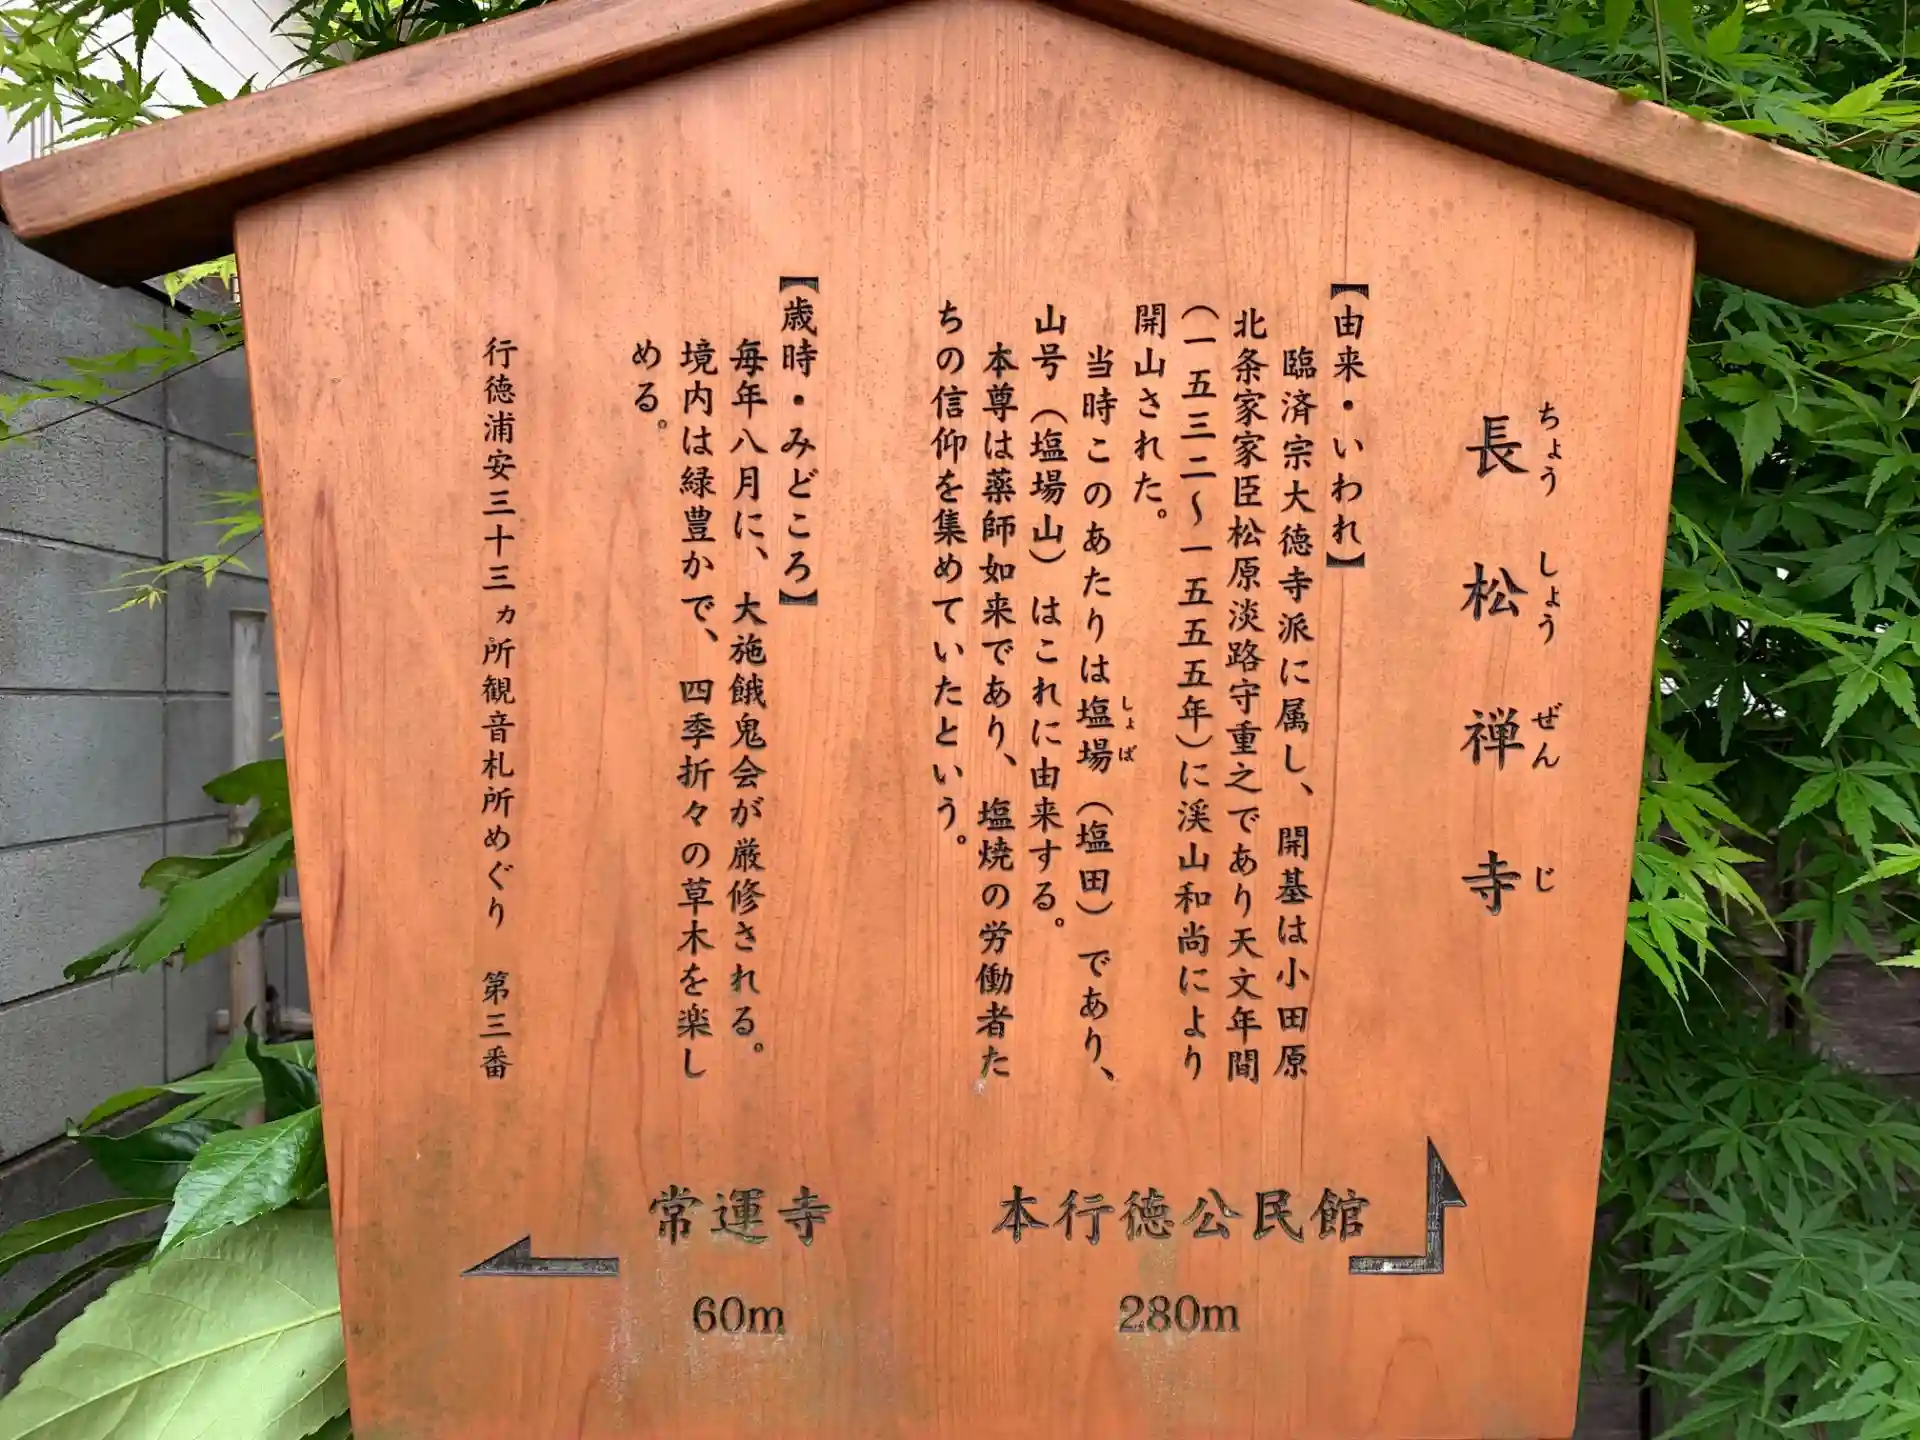 長松禅寺
ちょうしょうぜんじ
【由来・いわれ】
臨済宗大徳寺派に属し、開基は小田原
北条家家臣松原淡路守重之であり天文年間
（一五三二〜一五五五年）に渓山和尚により
開山された。
当時このあたりは塩場（塩田）であり、
しょば
山号（塩場山）はこれに由来する。
本尊は薬師如来であり、塩焼の労働者た
ちの信仰を集めていたという。
【歳時・みどころ】
毎年八月に、大施餓鬼会が厳修される。
境内は緑豊かで、四季折々の草木を楽し
める。
行徳浦安三十三ヵ所観音札所めぐり　第三番
本行徳公民館
280m
常運寺
60m